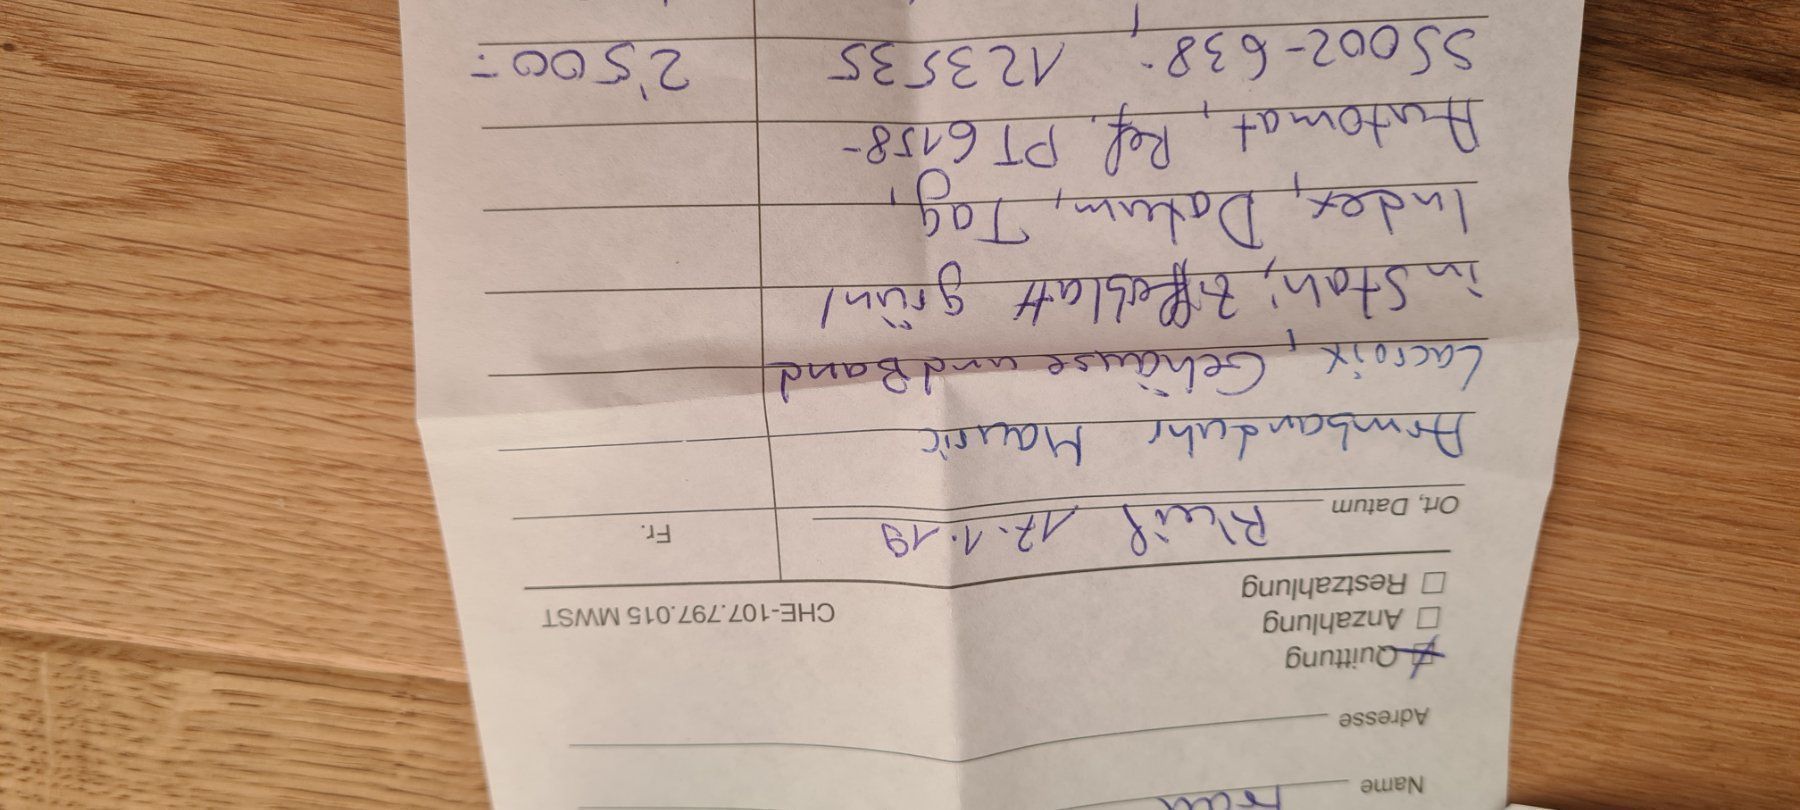 Name Frau
Adresse
☒ Quittung
☐ Anzahlung
☐ Restzahlung
CHE-107.797.015 MWST
Ort, Datum 17.1.19
Fr.
Armbanduhr Mauric
Lacroix, Gehäuse und Band
in Stahl, Zifferblatt grün/
Index, Datum, Tag,
Automat, Ref. PT6158-
SS002-638; 123535 2'500.-